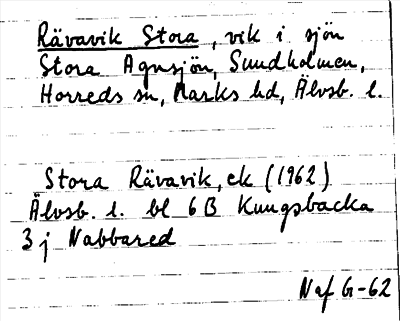 Rävavik Stora, vik i sjön
Stora Agnsjön, Sundholmen,
Horreds sn, Marks hd, Älvsb. l.
Stora Rävavik, ek (1962)
Älvsb. l. bl 6B Kungsbacka
3j Nabbared
Naf G-62